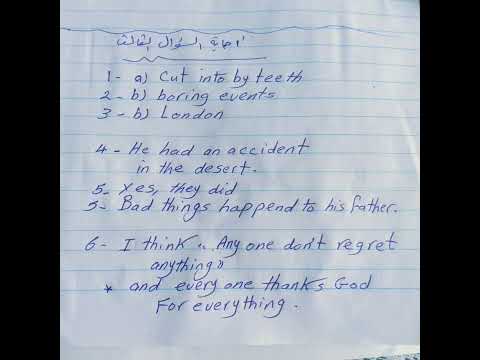 إجابة السؤال الثالث
1 - a) Cut into by teeth
2 - b) boring events
3 - b) London
4 - He had an accident
in the desert.
5 - Yes, they did
5 - Bad things happend to his father.
6 - I think „ Any one don't regret
anything»
* and every one thanks God
For everything.